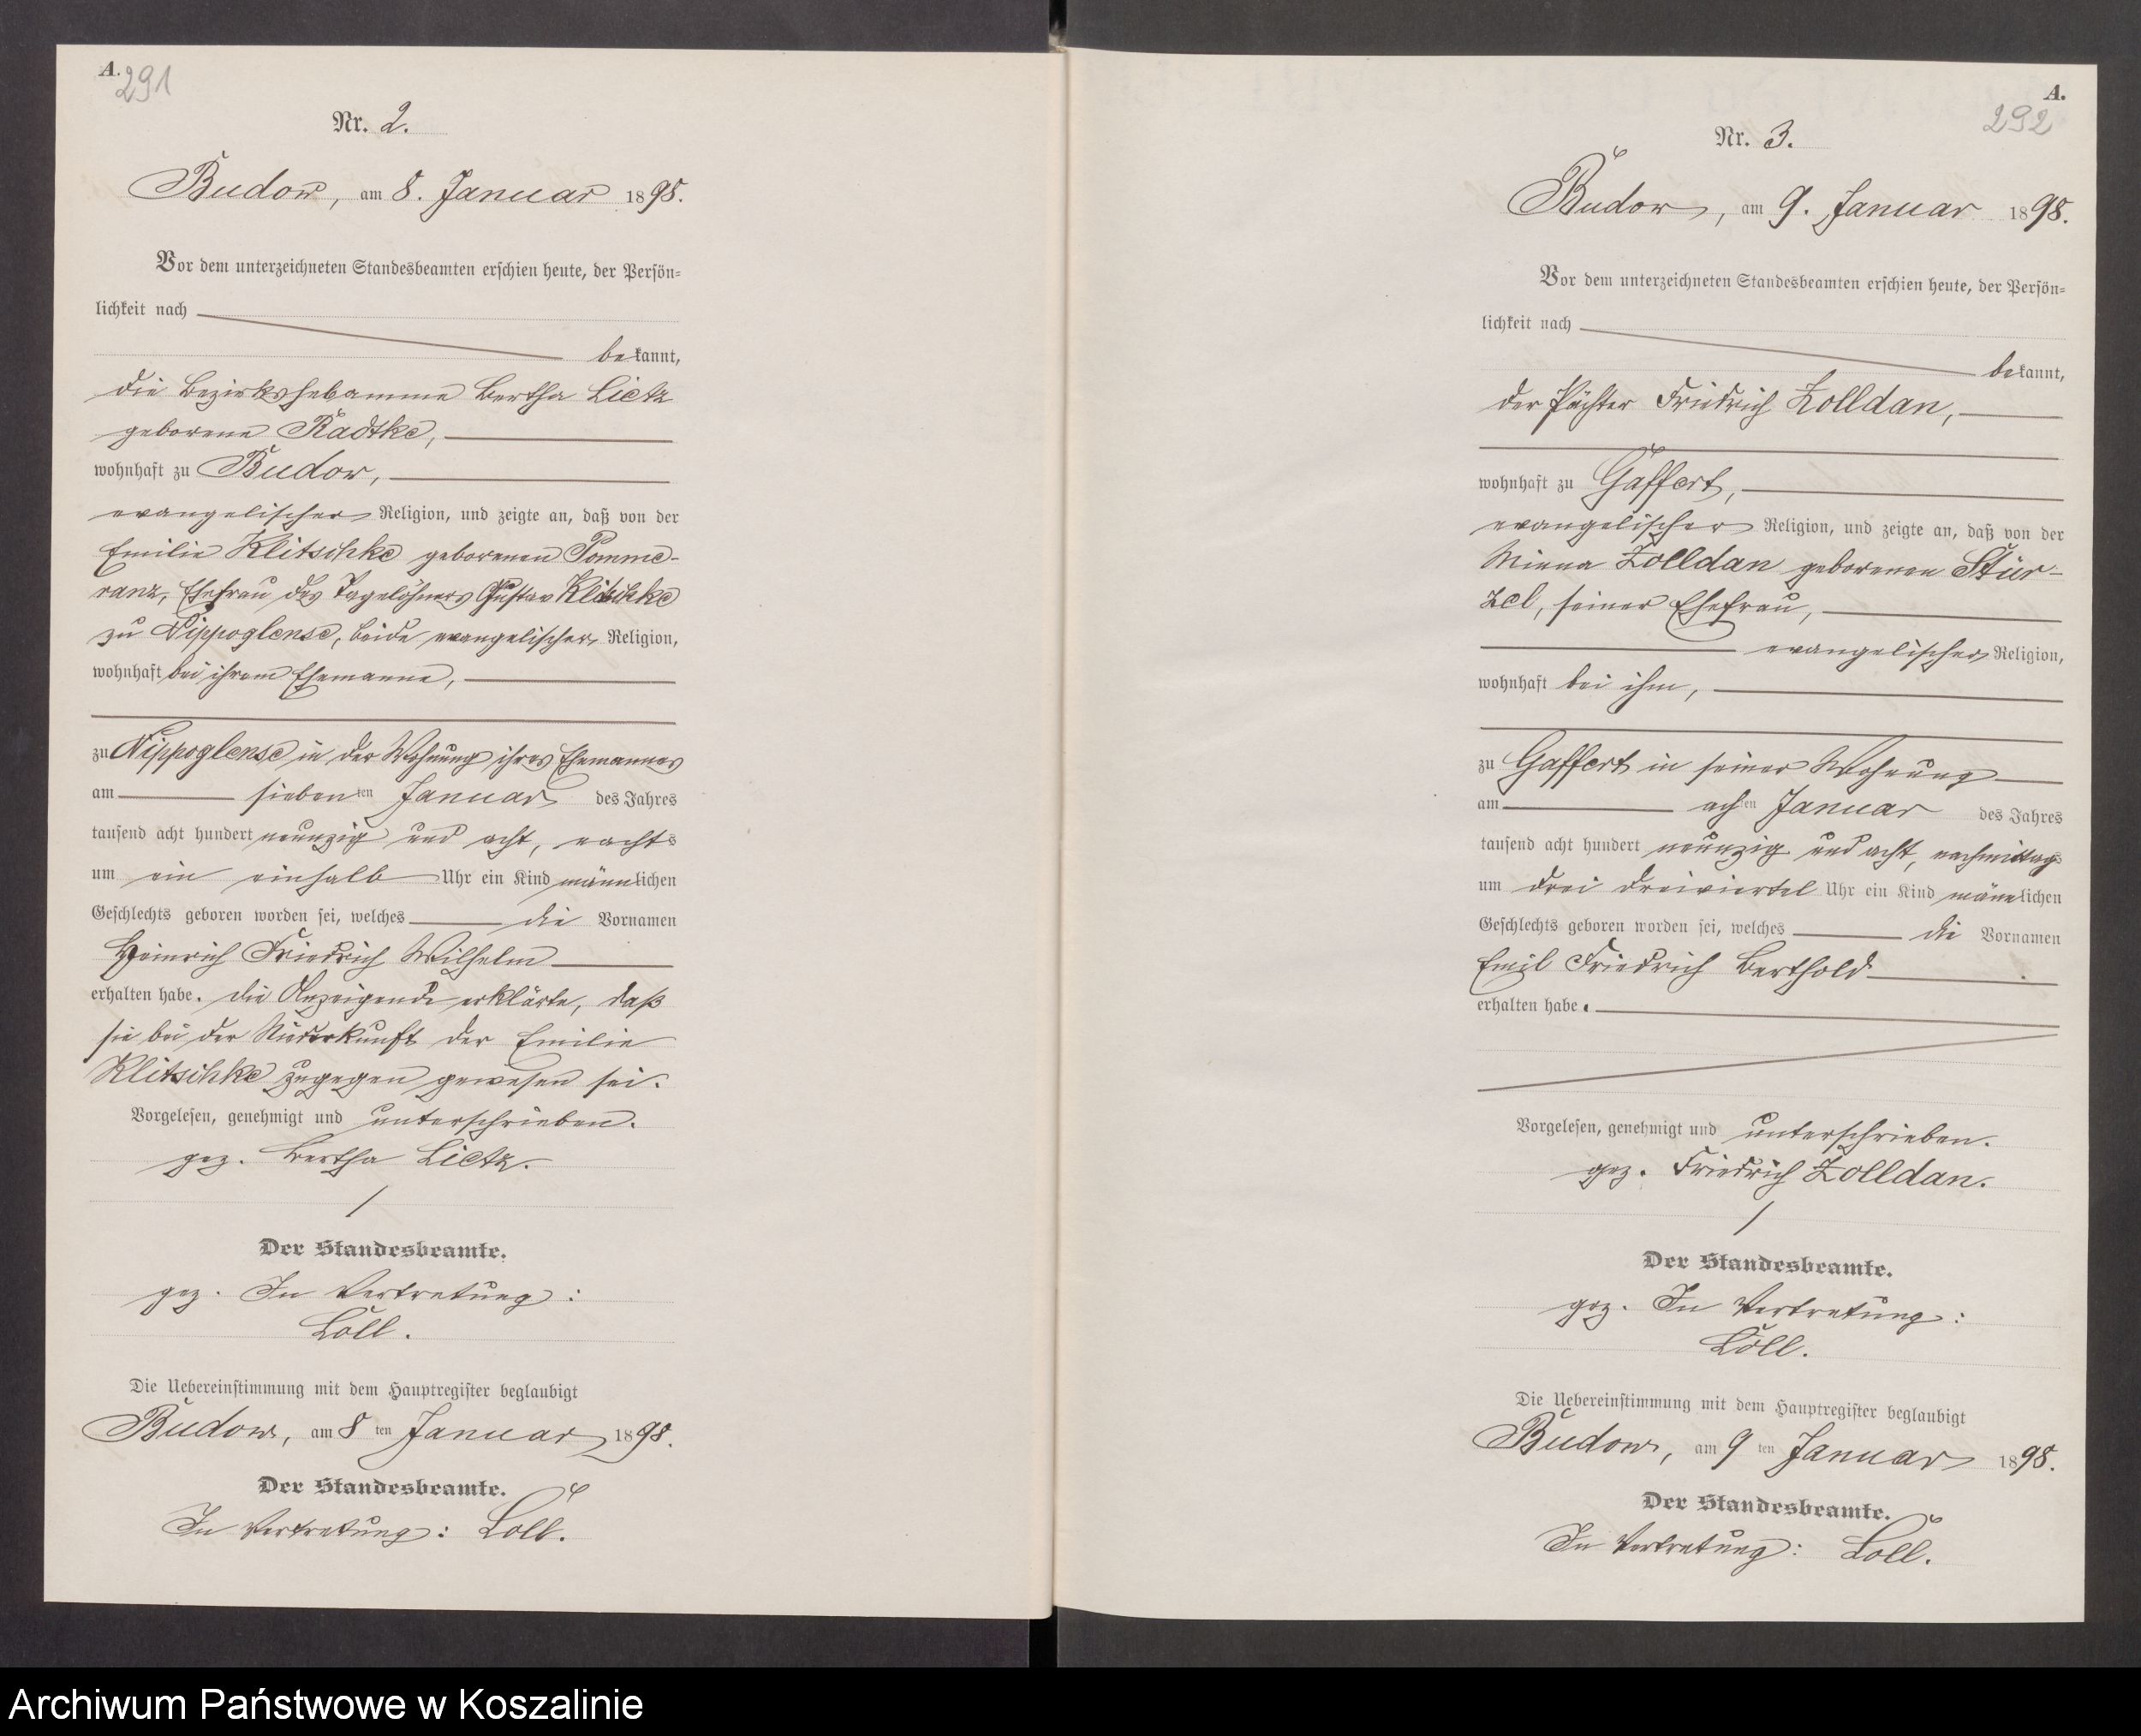 A.
291
Nr. 2.
Budow, am 8. Januar 1898.
Vor dem unterzeichneten Standesbeamten erschien heute, der Persön=
lichkeit nach
bekannt,
die Bezirkshebamme Bertha Lietz
geborene Radtke,
wohnhaft zu Budow,
evangelischer Religion, und zeigte an, daß von der
Emilie Klitschke geborenen Pomme-
ranz, Ehefrau des Tagelöhners Gustav Klitschke
zu Nippoglense, beide evangelischer Religion,
wohnhaft bei ihrem Ehemanne,
zu Nippoglense in der Wohnung ihres Ehemannes
am siebenten Januar des Jahres
tausend acht hundert neunzig und acht, nachts
um ein einhalb Uhr ein Kind männlichen
Geschlechts geboren worden sei, welches die Vornamen
Heinrich Friedrich Wilhelm
erhalten habe. Die Anzeigende erklärte, daß
sie bei der Niederkunft der Emilie
Klitschke zugegen gewesen sei.
Vorgelesen, genehmigt und unterschrieben.
gez. Bertha Lietz.
Der Standesbeamte.
gez. In Vertretung:
Loll.
Die Uebereinstimmung mit dem Hauptregister beglaubigt
Budow, am 8 ten Januar 1898.
Der Standesbeamte.
In Vertretung: Loll.
A.
292
Nr. 3.
Budow, am 9. Januar 1898.
Vor dem unterzeichneten Standesbeamten erschien heute, der Persön=
lichkeit nach
bekannt,
der Pächter Friedrich Zolldan,
wohnhaft zu Gaffert,
evangelischer Religion, und zeigte an, daß von der
Minna Zolldan geborenen Stür-
zel, seiner Ehefrau,
evangelischer Religion,
wohnhaft bei ihm,
zu Gaffert in seiner Wohnung
am achten Januar des Jahres
tausend acht hundert neunzig und acht, nachmittags
um drei dreiviertel Uhr ein Kind männlichen
Geschlechts geboren worden sei, welches die Vornamen
Emil Friedrich Berthold
erhalten habe.
Vorgelesen, genehmigt und unterschrieben.
gez. Friedrich Zolldan.
Der Standesbeamte.
gez. In Vertretung:
Loll.
Die Uebereinstimmung mit dem Hauptregister beglaubigt
Budow, am 9 ten Januar 1898.
Der Standesbeamte.
In Vertretung: Loll.
Archiwum Państwowe w Koszalinie